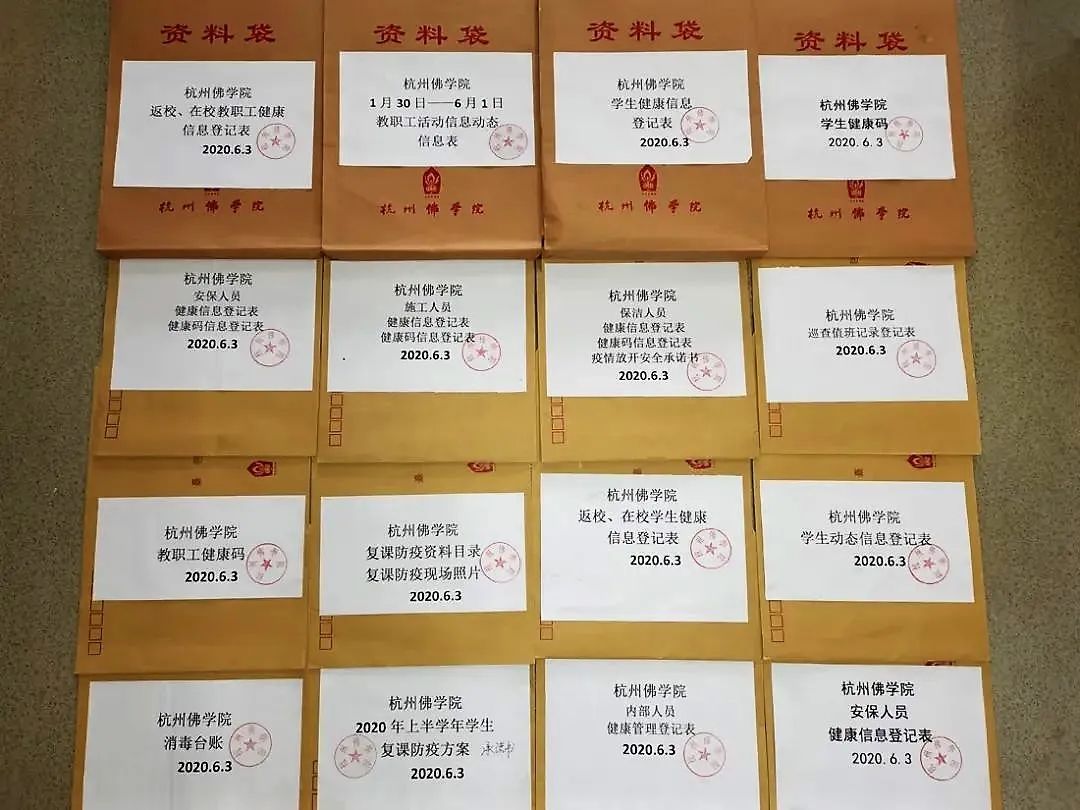 资料袋
杭州佛学院
返校、在校教职工健康
信息登记表
2020.6.3
资料袋
杭州佛学院
1月30日——6月1日
教职工活动信息动态
信息表
杭州佛学院
资料袋
杭州佛学院
学生健康信息
登记表
2020.6.3
杭州佛学院
资料袋
杭州佛学院
学生健康码
2020.6.3
杭州佛学院
杭州佛学院
安保人员
健康信息登记表
健康码信息登记表
2020.6.3
杭州佛学院
施工人员
健康信息登记表
健康码信息登记表
2020.6.3
杭州佛学院
保洁人员
健康信息登记表
健康码信息登记表
疫情放开安全承诺书
2020.6.3
杭州佛学院
巡查值班记录登记表
2020.6.3
杭州佛学院
教职工健康码
2020.6.3
杭州佛学院
复课防疫资料目录
复课防疫现场照片
2020.6.3
杭州佛学院
返校、在校学生健康
信息登记表
2020.6.3
杭州佛学院
学生动态信息登记表
2020.6.3
杭州佛学院
消毒台账
2020.6.3
杭州佛学院
2020年上半学年学生
复课防疫方案 承诺书
2020.6.3
杭州佛学院
内部人员
健康管理登记表
2020.6.3
杭州佛学院
安保人员
健康信息登记表
2020.6.3